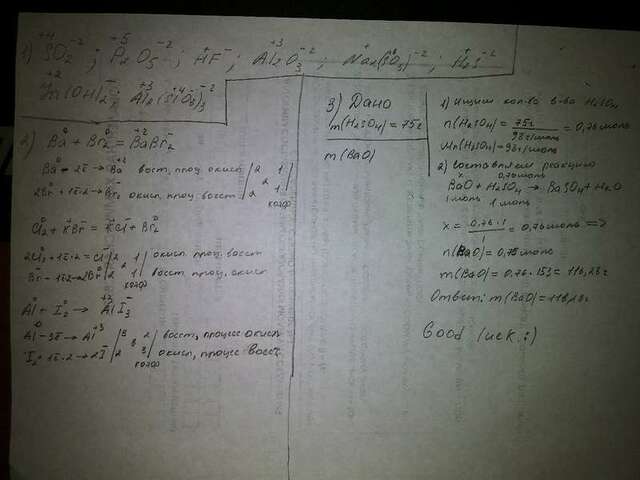 1) SO₂; P₂O₅; HF; Al₂O₃; Na₂(SO₃); H₂S
Zn(OH)₂; Al₂(SiO₃)₃
2) Ba + Br₂ = BaBr₂
Ba - 2e → Ba восст, проц окисл 2 1
2Br + 1e·2 → Br₂ окисл, проц. восст 2 1
коэф
Cl₂ + KBr = KCl + Br₂
2Cl + 1e·2 = Cl 2 1 окисл. проц. восст
Br - 1e·2 → 2Br 2 1 восст, проц. окисл
коэф
Al + I₂ → AlI₃
Al - 3e → Al 3 2 восст, процесс окисл
I₂ + 1e·2 → 2I 2 3 окисл, процесс восст.
коэф
3) Дано
m(H₂SO₄) = 75г
m(BaO)
1) Ищим кол-во в-ва H₂SO₄
n(H₂SO₄) = 75г / 98г/моль = 0,76 моль
M(H₂SO₄) - 98г/моль
2) составляем реакцию
x 0,76 моль
BaO + H₂SO₄ → BaSO₄ + H₂O
1 моль 1 моль
x = 0,76·1 / 1 = 0,76 моль =>
n(BaO) = 0,76 моль
m(BaO) = 0,76·153 = 116,28г
Ответ: m(BaO) = 116,28г
Good luck :)